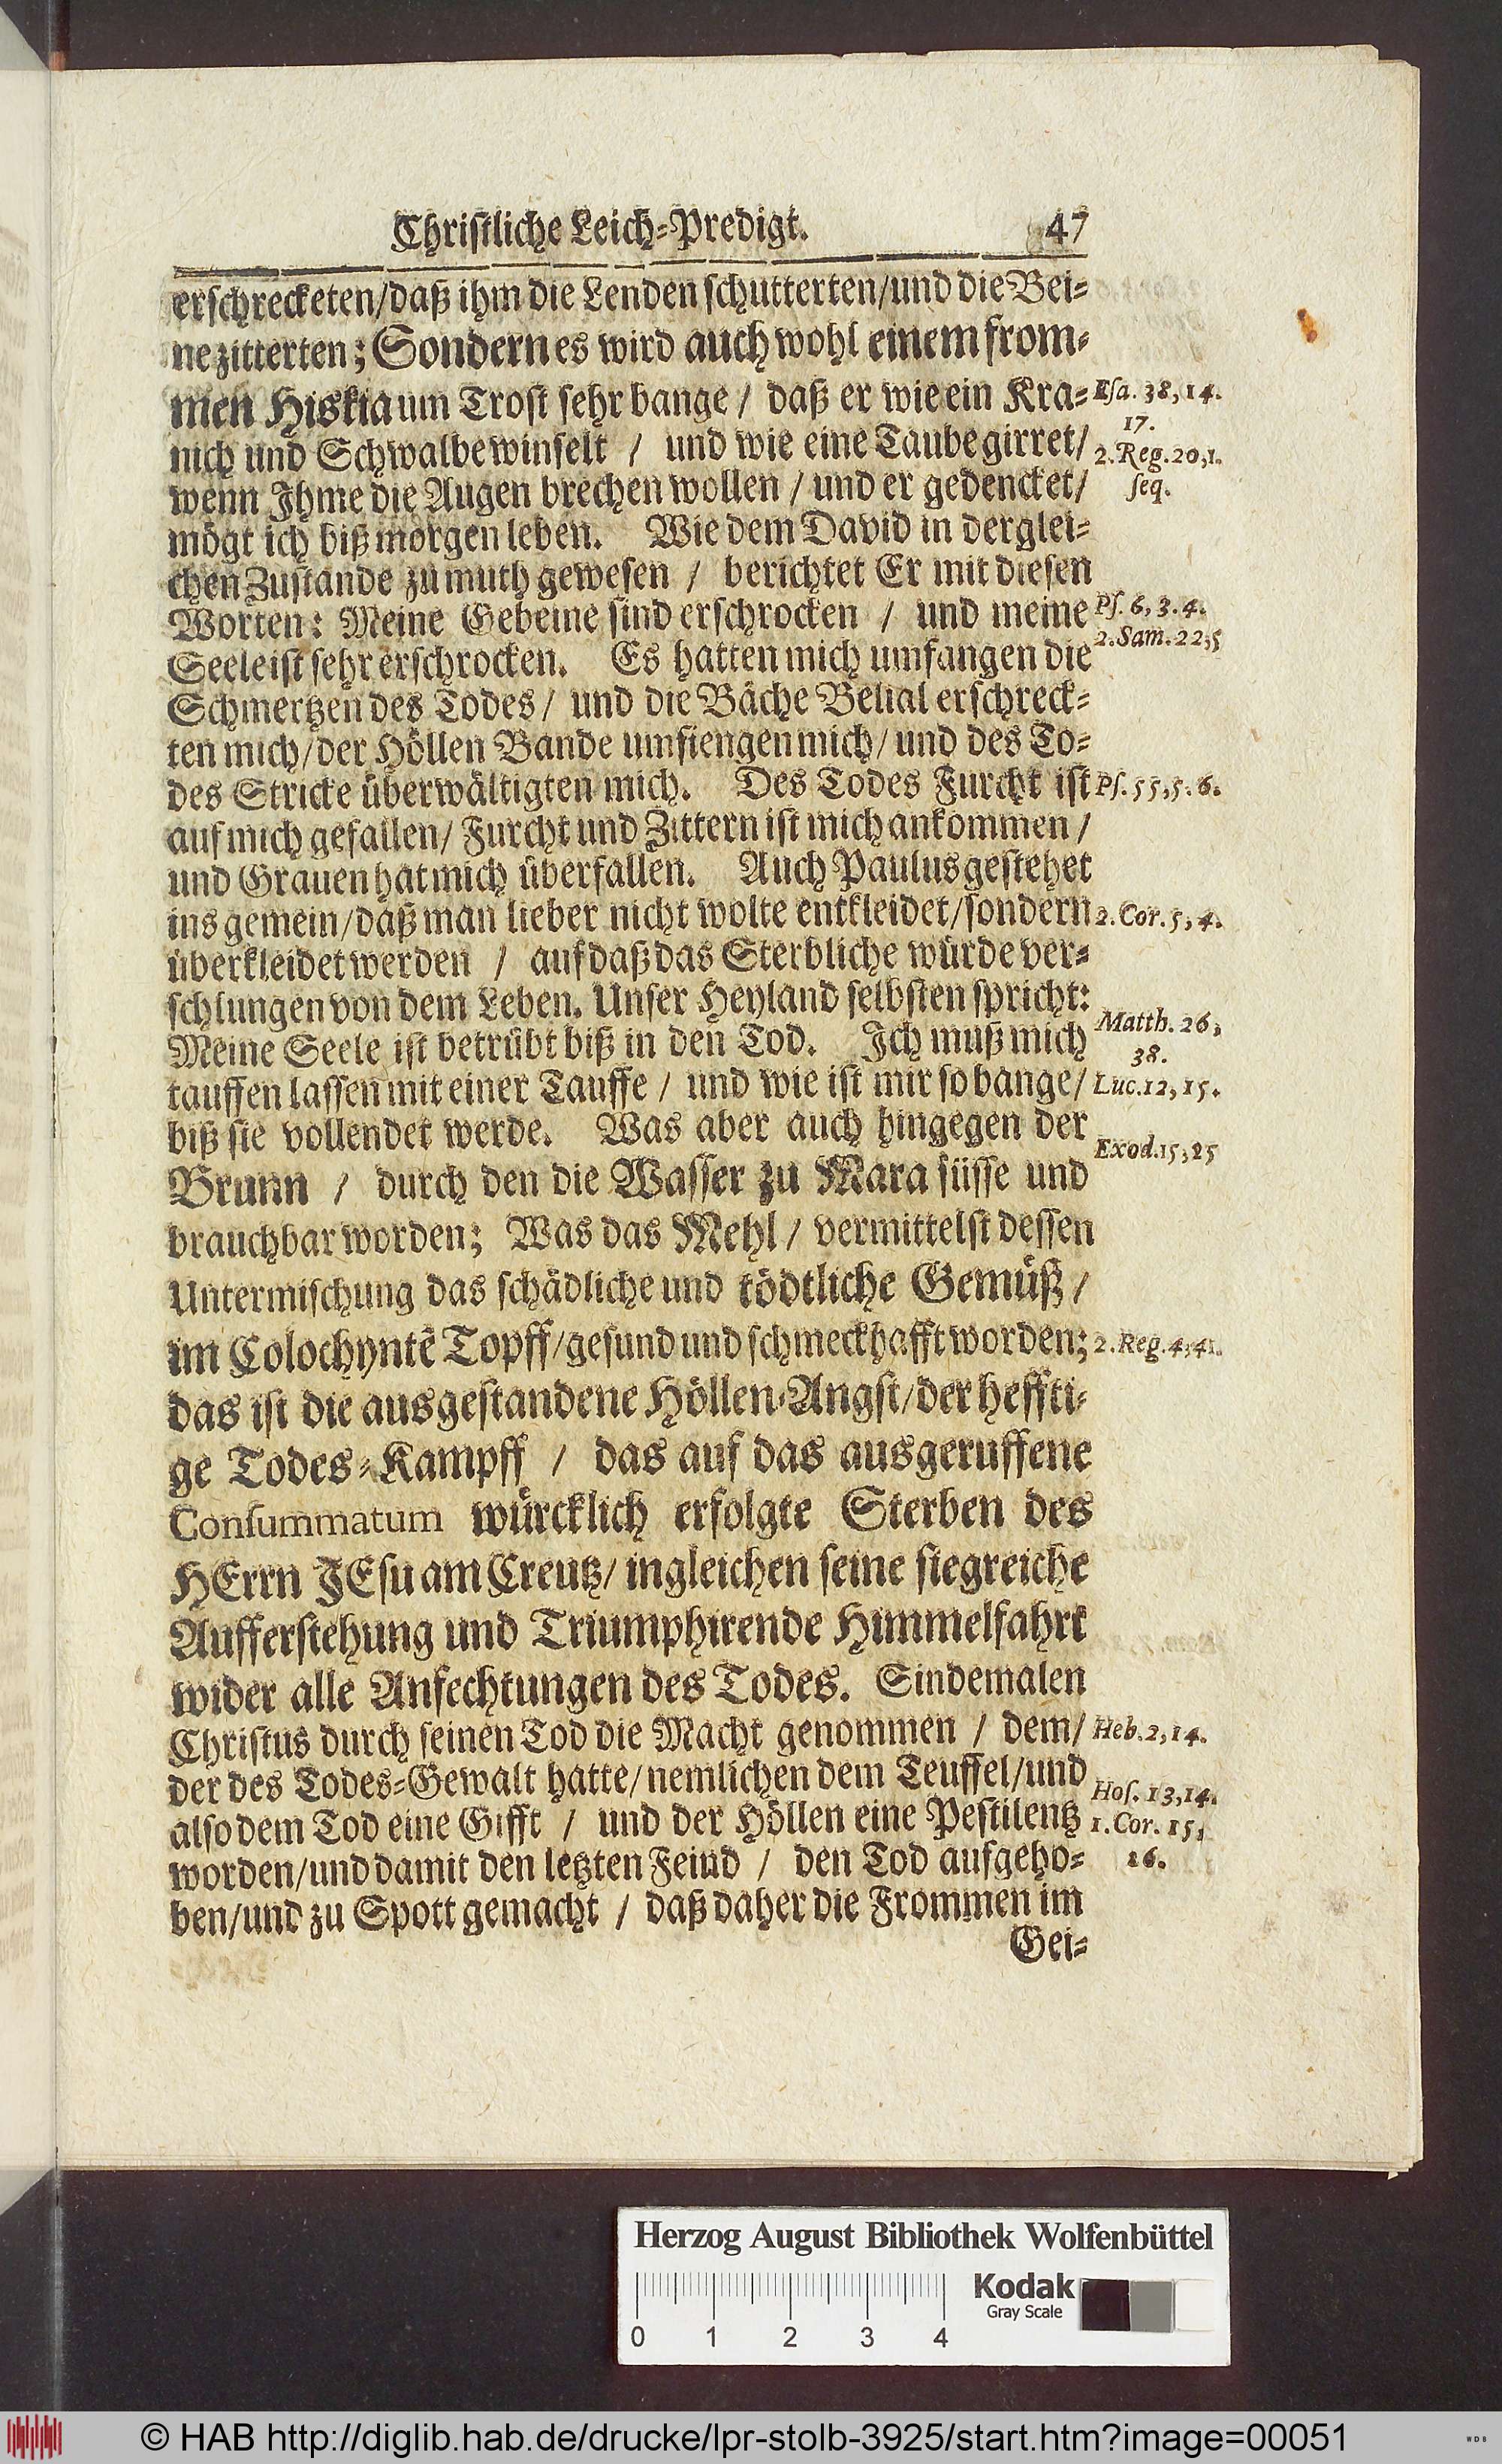 Christliche Leich-Predigt. 47
erschrecketen/daß ihm die Lenden schutterten/und die Bei-
ne zitterten; Sondern es wird auch wohl einem from-
men Hiskia um Trost sehr bange / daß er wie ein Kra-
Esa. 38, 14.
17.
nich und Schwalbe winselt / und wie eine Taube girret/
2. Reg. 20, 1.
wenn Ihme die Augen brechen wollen / und er gedencket/
seq.
mögt ich biß morgen leben. Wie dem David in derglei-
chen Zustande zu muth gewesen / berichtet Er mit diesen
Worten: Meine Gebeine sind erschrocken / und meine
Ps. 6, 3. 4.
2. Sam. 22, 5
Seele ist sehr erschrocken. Es hatten mich umfangen die
Schmertzen des Todes / und die Bäche Belial erschreck-
ten mich/der Höllen Bande umfiengen mich/und des To-
des Stricke überwältigten mich. Des Todes Furcht ist
Ps. 55, 5. 6.
auf mich gefallen/ Furcht und Zittern ist mich ankommen /
und Grauen hat mich überfallen. Auch Paulus gestehet
ins gemein/daß man lieber nicht wolte entkleidet/sondern
2. Cor. 5, 4.
überkleidet werden / auf daß das Sterbliche würde ver-
schlungen von dem Leben. Unser Heyland selbsten spricht:
Matth. 26,
38.
Meine Seele ist betrübt biß in den Tod. Ich muß mich
tauffen lassen mit einer Tauffe / und wie ist mir so bange/
Luc. 12, 15.
biß sie vollendet werde. Was aber auch hingegen der
Exod. 15, 25
Brunn / durch den die Wasser zu Mara süsse und
brauchbar worden; Was das Mehl / vermittelst dessen
Untermischung das schädliche und tödtliche Gemüß /
im Colochyntē Topff/gesund und schmeckhafft worden;
2. Reg. 4, 41.
das ist die ausgestandene Höllen-Angst/der heffti-
ge Todes-Kampff / das auf das ausgeruffene
Consummatum würcklich erfolgte Sterben des
HErrn JEsu am Creutz/ ingleichen seine siegreiche
Aufferstehung und Triumphirende Himmelfahrt
wider alle Anfechtungen des Todes. Sindemalen
Christus durch seinen Tod die Macht genommen / dem/
Heb. 2, 14.
der des Todes-Gewalt hatte/nemlichen dem Teuffel/und
Hos. 13, 14.
also dem Tod eine Gifft / und der Höllen eine Pestilentz
1. Cor. 15,
26.
worden/und damit den letzten Feind / den Tod aufgeho-
ben/und zu Spott gemacht / daß daher die Frommen im
Gei-
Herzog August Bibliothek Wolfenbüttel
Kodak
Gray Scale
0 1 2 3 4
© HAB http://diglib.hab.de/drucke/lpr-stolb-3925/start.htm?image=00051
WDB